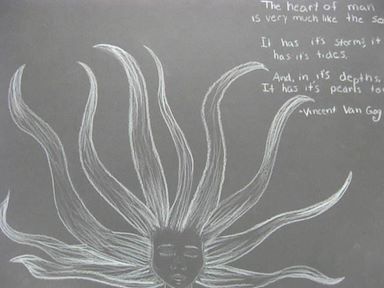 The heart of man
is very much like the sea
It has it's storms, it
has it's tides,
And, in it's depths,
It has it's pearls too
-Vincent Van Gog